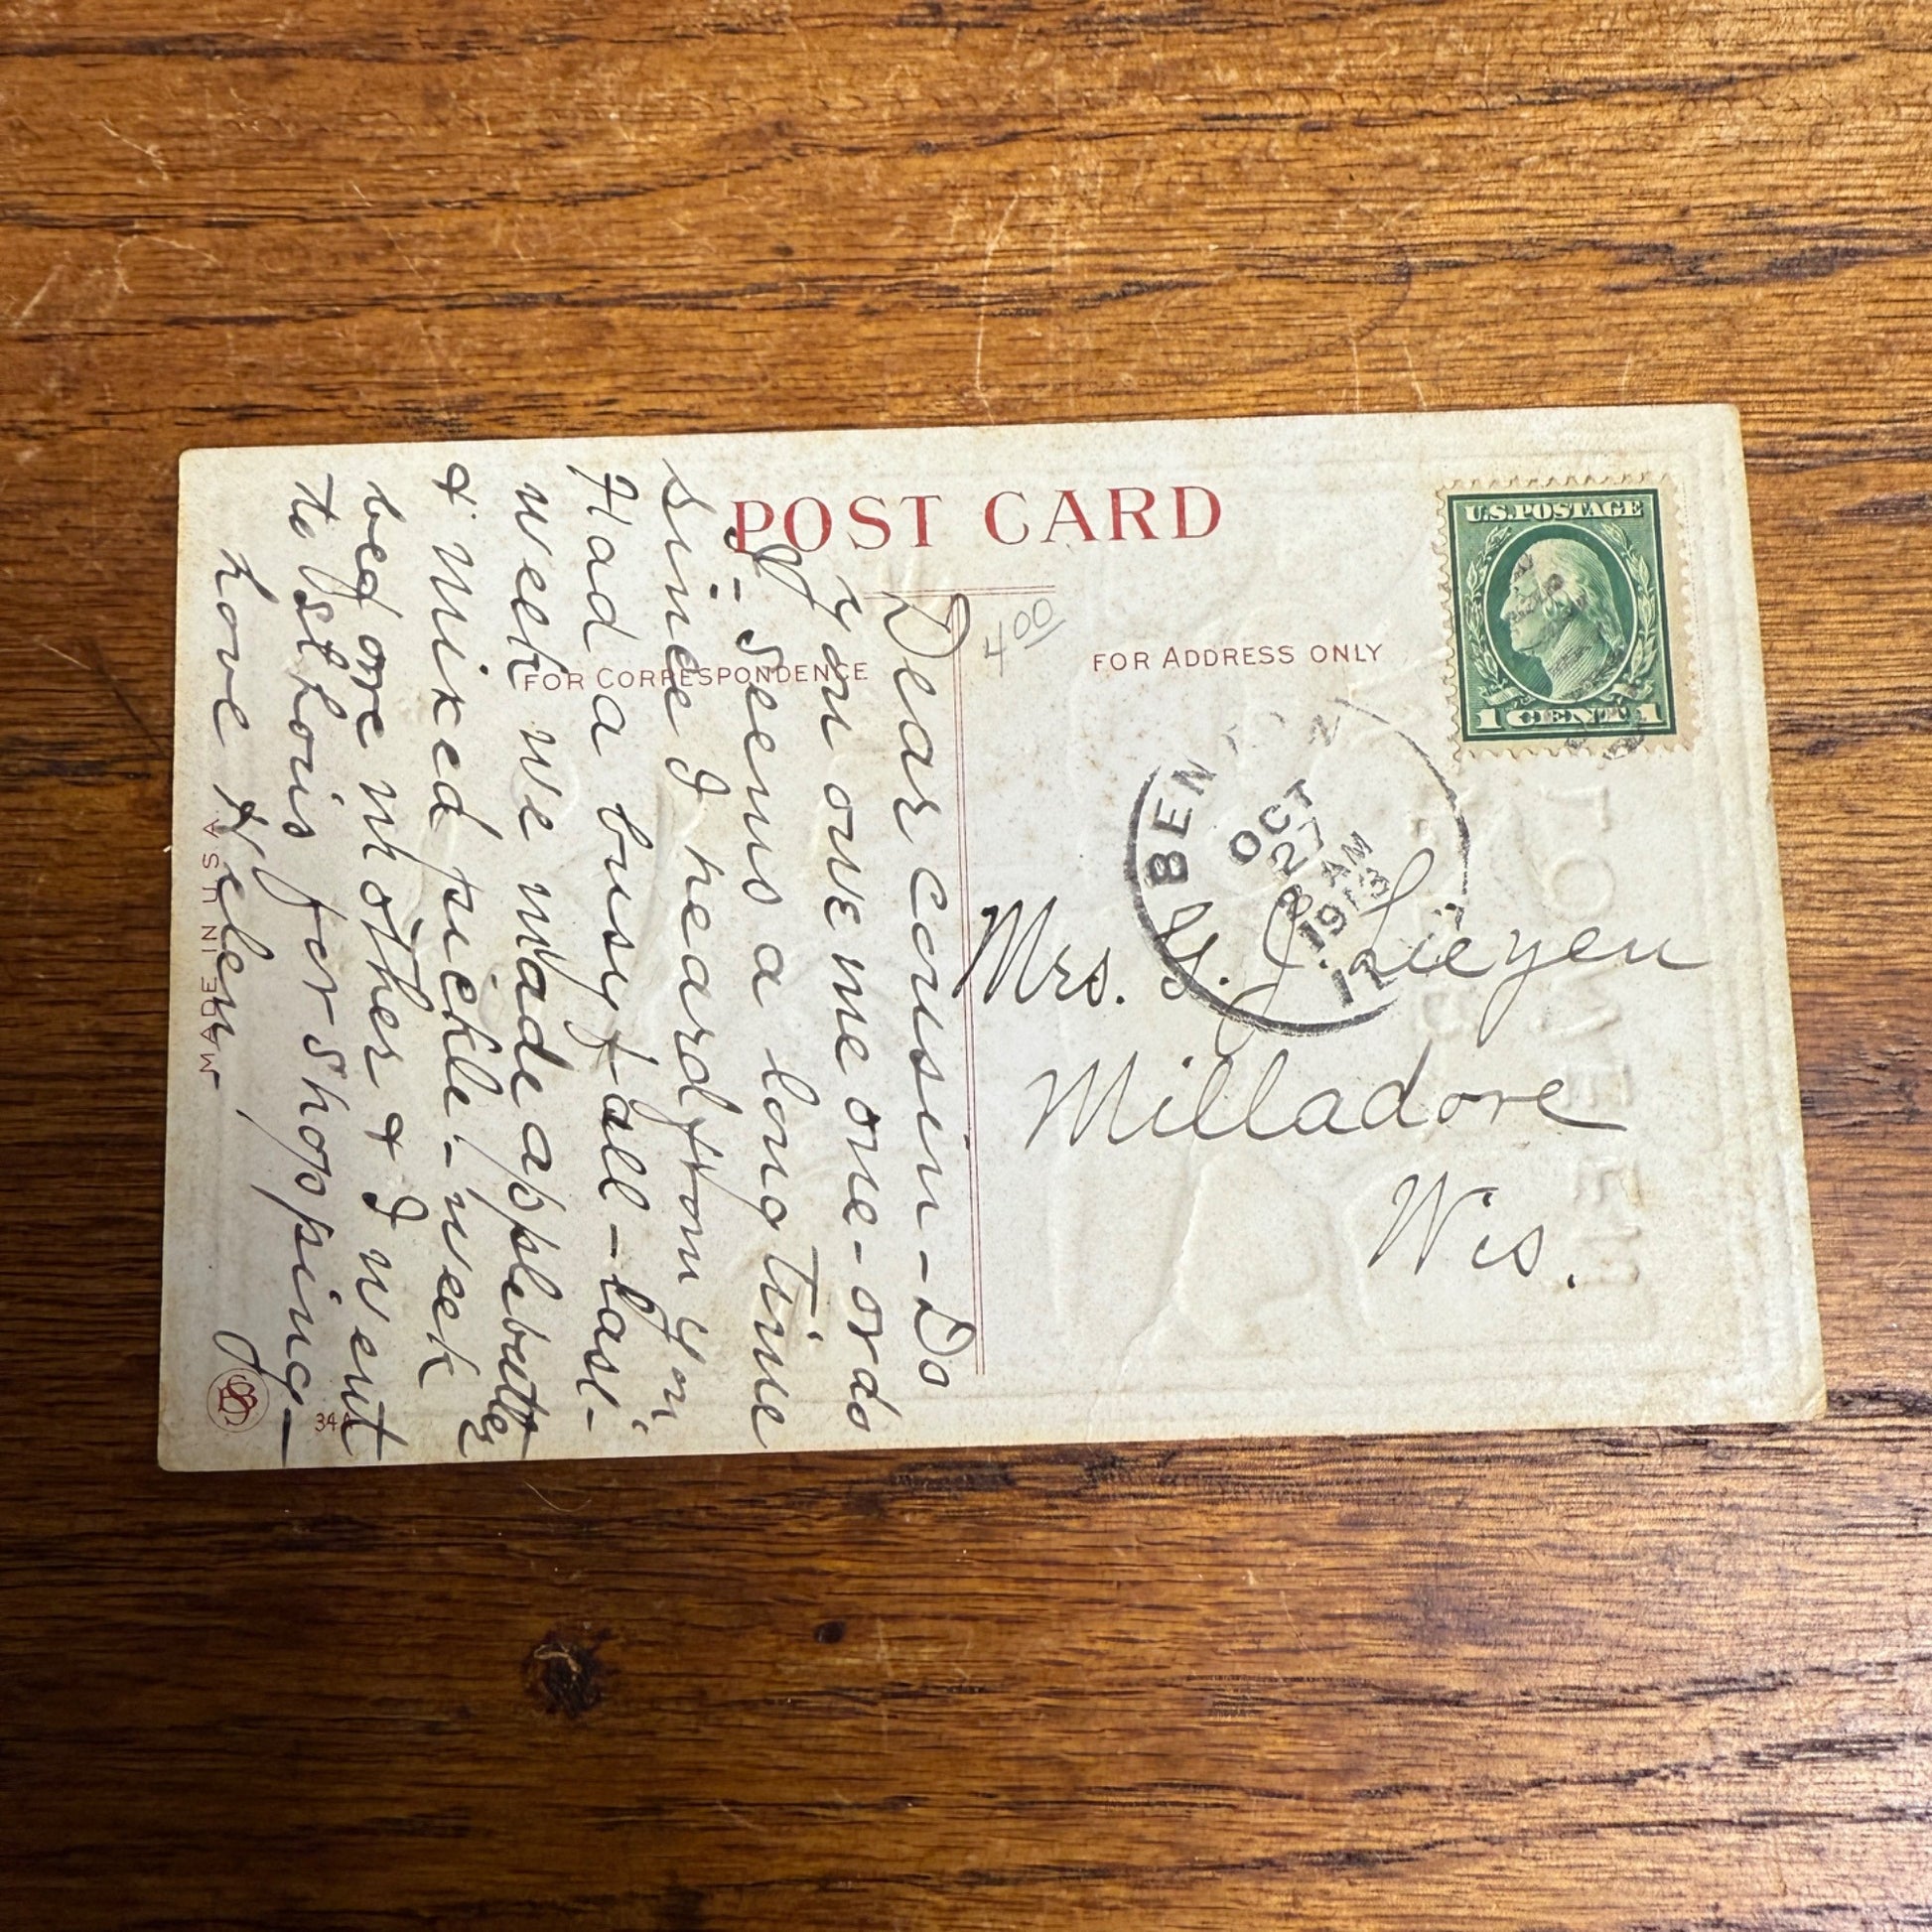 POST CARD
U.S. POSTAGE
1 CENT 1
4 00
FOR CORRESPONDENCE
FOR ADDRESS ONLY
BEN
OCT
27
8 AM
1913
Mrs. J.
Milladore
Wis.
Dear Cousin - Do
you owe me one - or do
I - Seems a long time
since I heard from you.
Had a busy fall - last
week we made apple butter
& mixed pickle - week
before mother & I went
to St Louis for shopping -
Love Helen
MADE IN U.S.A.
34